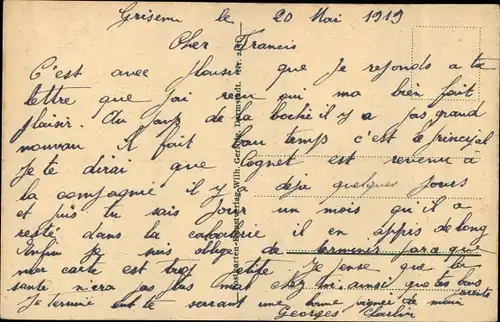 Grisenu le 20 Mai 1919
Cher Francis
C'est avec plaisir que je reponds a ta
lettre que j'ai reçu qui ma bien fait
plaisir. Au pays de la bochie il y a pas grand
nouveau Il fait beau temps c'est le principal
Je te dirai que Cognet est revenu a
la compagnie il y déja quelques jours
et puis tu sais pour un mois qu'il a
resté dans la cavalerie il en a appris de long
Enfin je suis obligé de terminer parce que
mar carte est trop petite. Je pense que la
santé n'era pas plus mal chez toi ainsi que tes bons
parents
Je termine en te serrant une bonne poignée de main
Georges